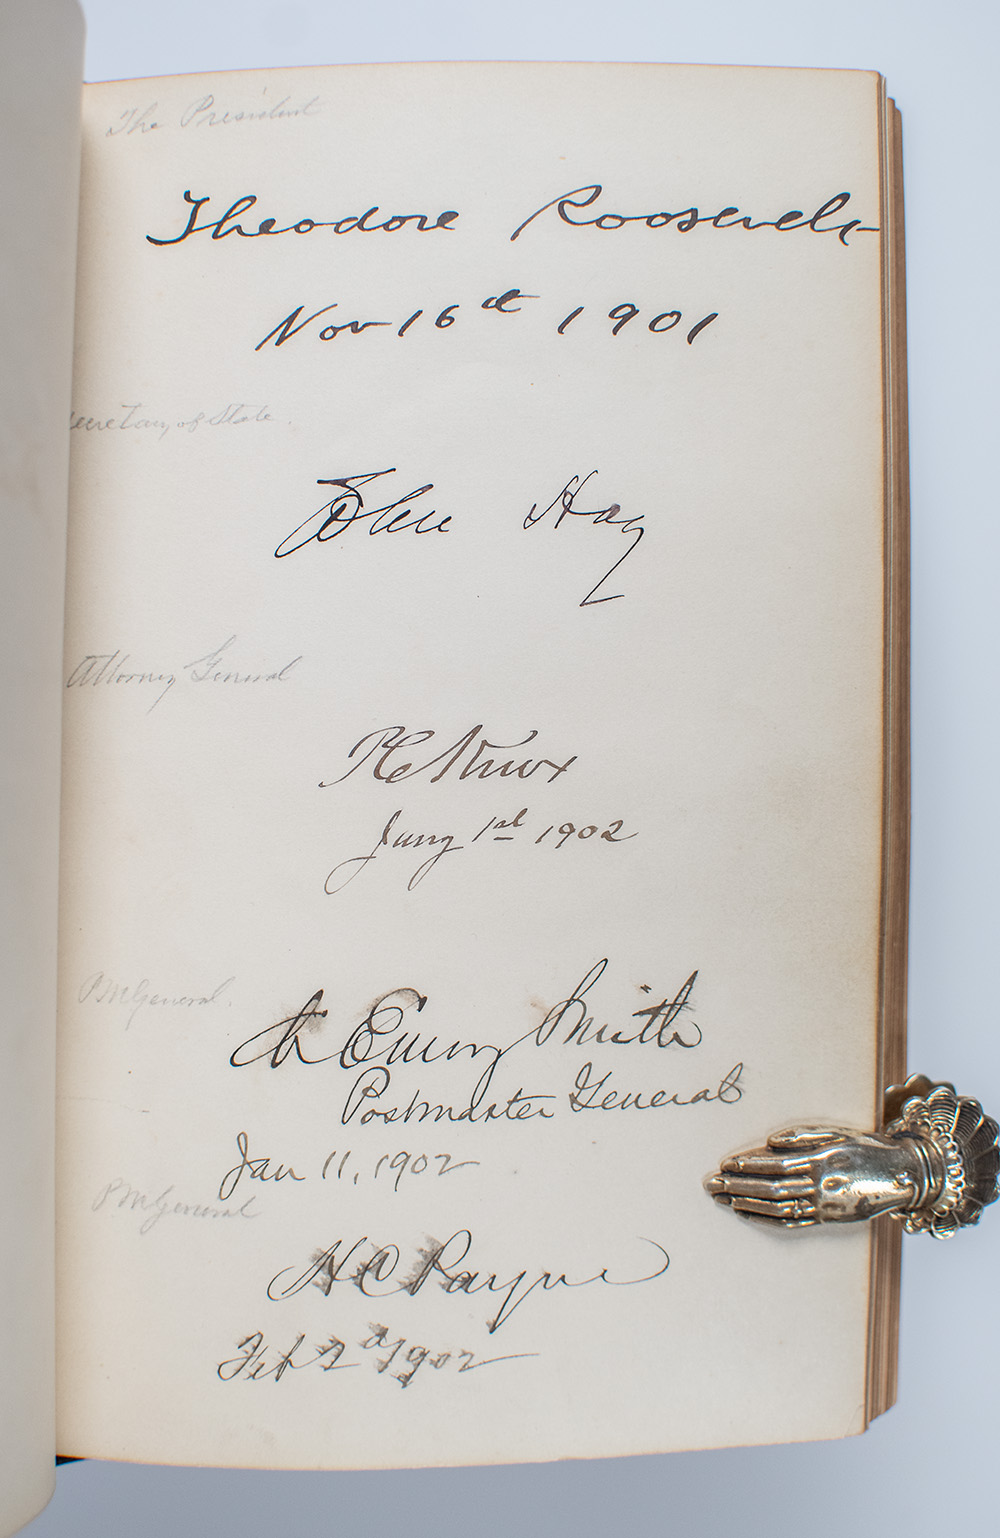 The President
Theodore Roosevelt
Nov 16th 1901
Secretary of State.
John Hay
Attorney General
PC Knox
Jany 1st 1902
P.M General.
Ch Emory Smith
Postmaster General
Jan 11, 1902
P M General
H C Payne
Feb 2d 1902